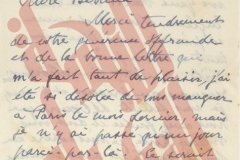 Merci tendrement
de votre généreuse offrande
et de la bonne lettre qui
m'a fait tant de plaisir, j'ai
été si désolée de vous manquer
à Paris le mois dernier, mais
je n'y ai passé qu'un jour
parci-par-là